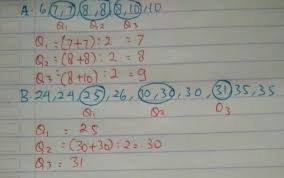 A. 6, 7, 7, 8, 8, 8, 10, 10
Q₁ Q₂ Q₃
Q₁ = (7+7) : 2 = 7
Q₂ = (8+8) : 2 = 8
Q₃ = (8+10) : 2 = 9
B. 24, 24, 25, 26, 30, 30, 30, 31, 35, 35
Q₁ Q₂ Q₃
Q₁ = 25
Q₂ = (30+30) : 2 = 30
Q₃ = 31